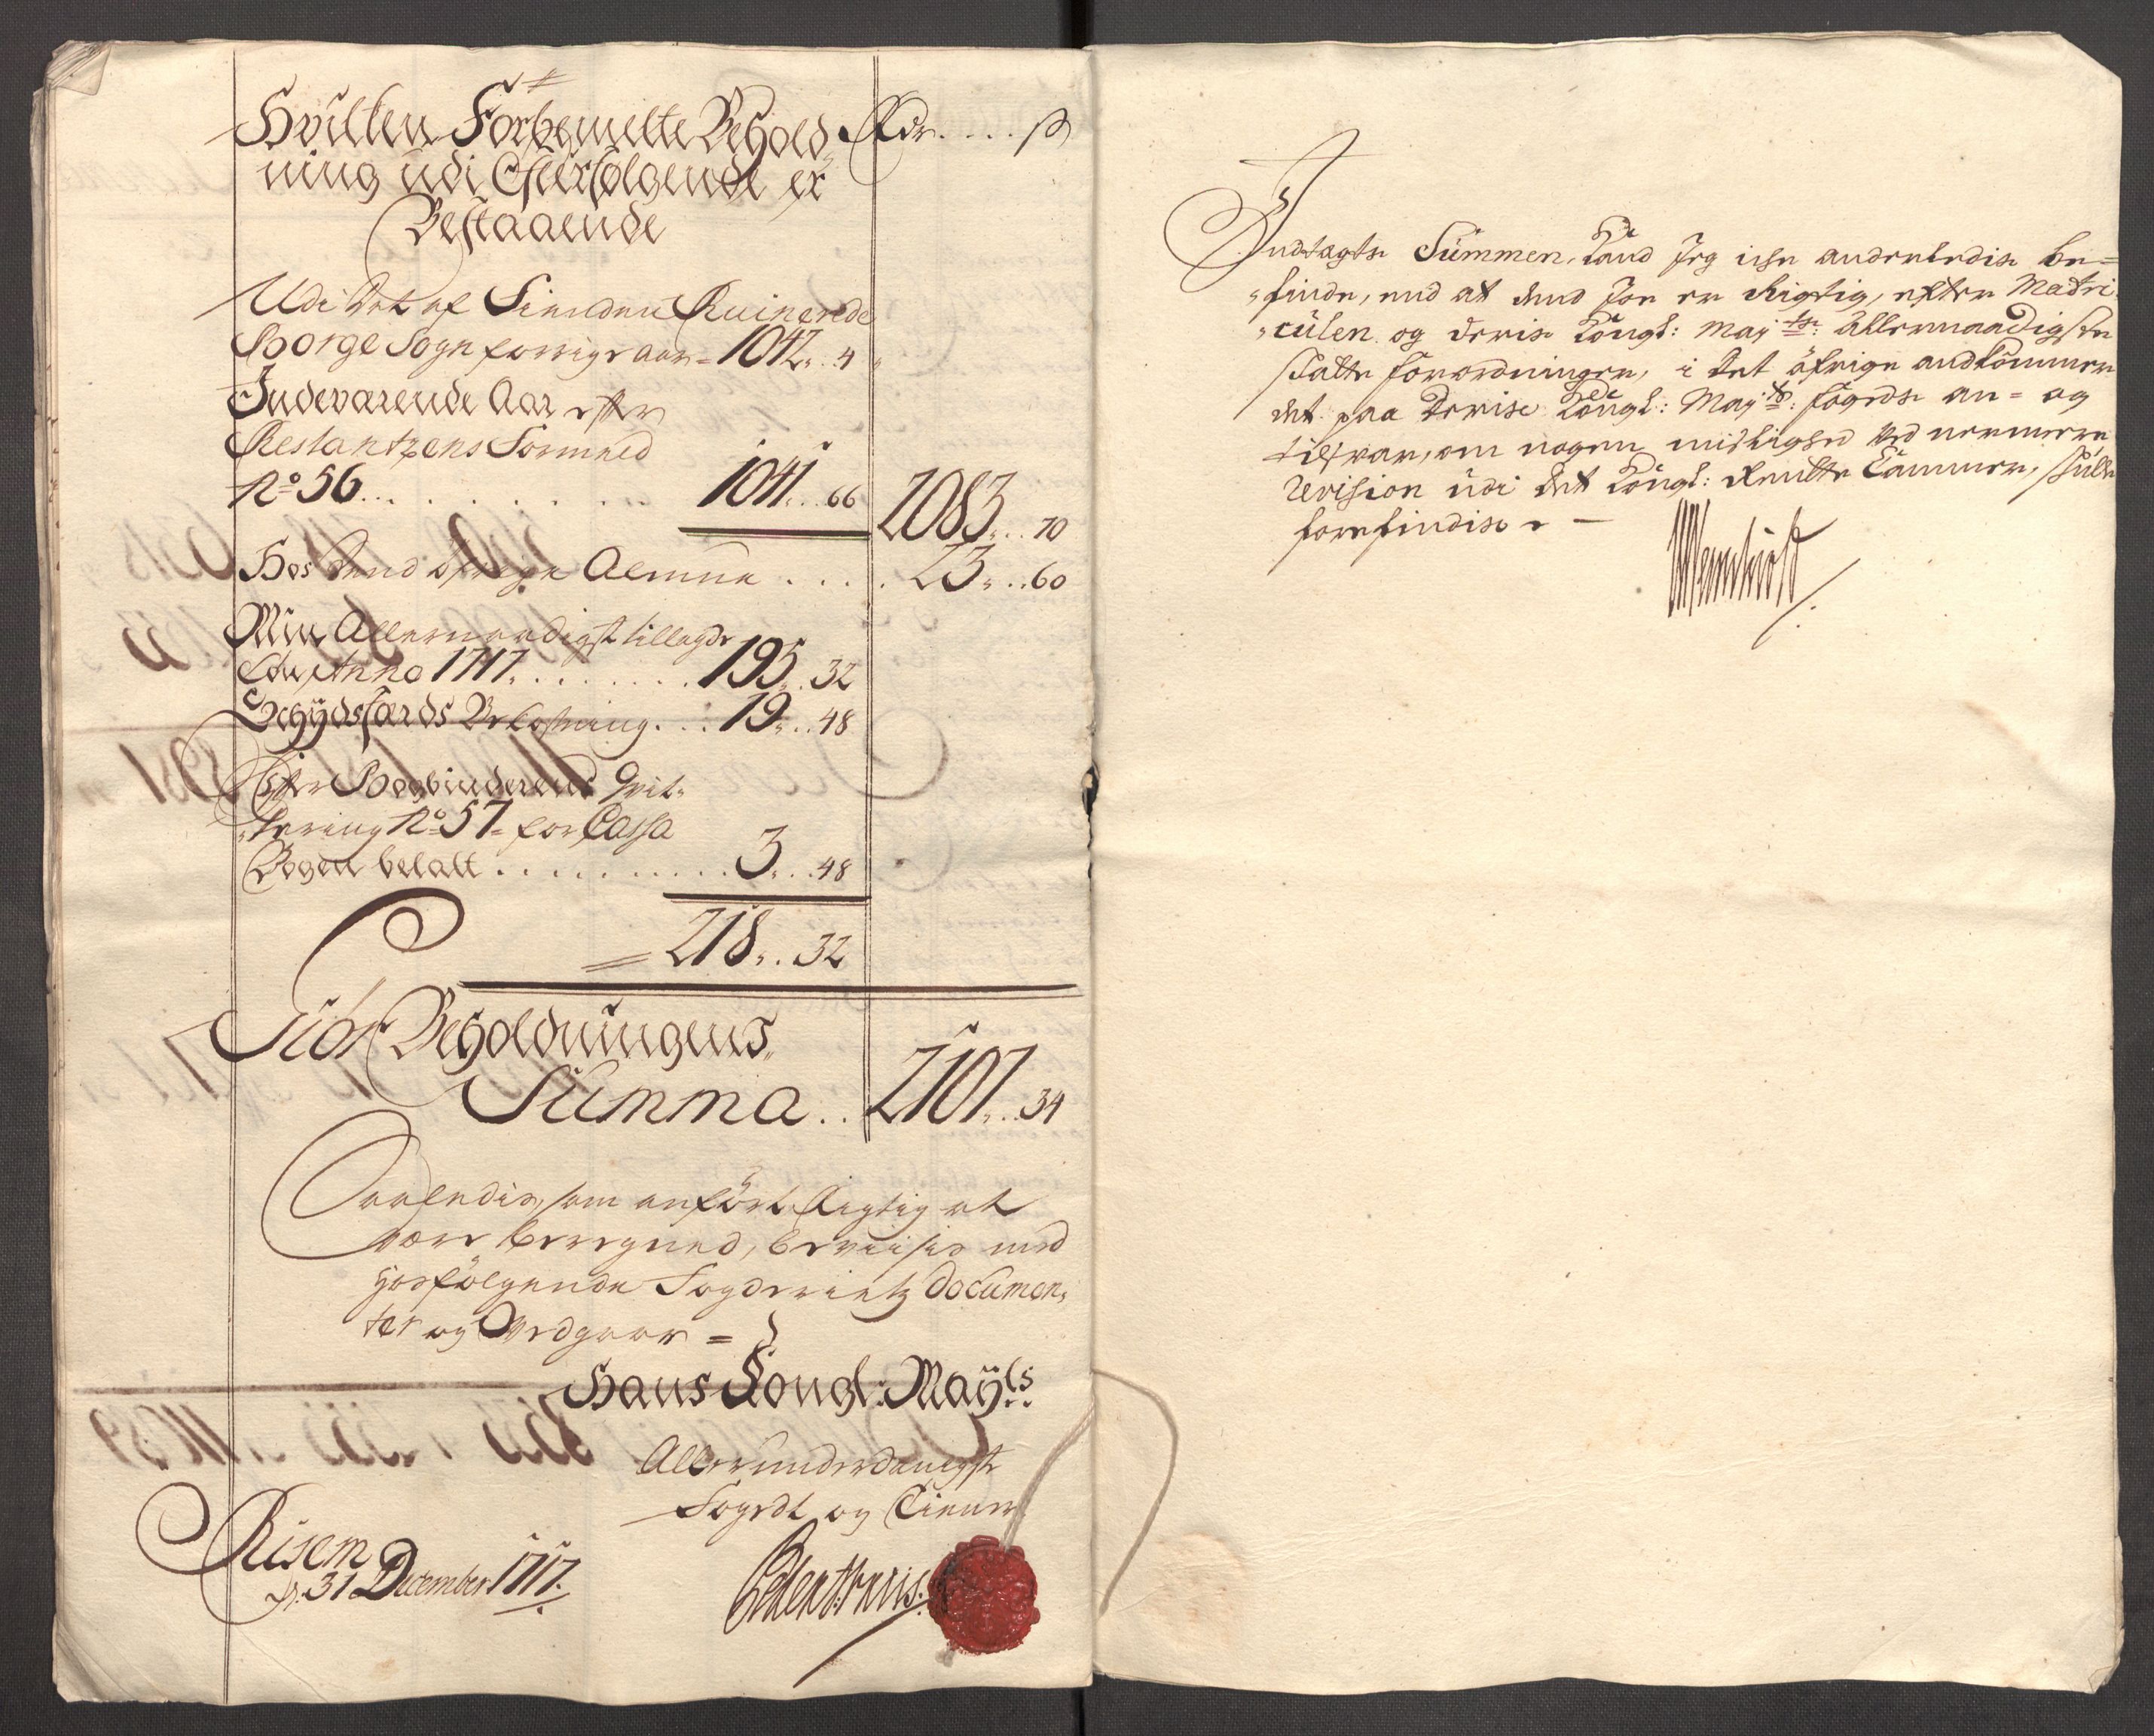 Hvilken Forbemelte Behold- Rdr.... ß
ning udi Efterfølgende er
Bestaaende
Udi Det af Fienden Ruinerede
Borge Sogn forrige aar = 1042.. 4
Indeværende Aar efter
Restantzens Formeld
No 56......... 1041.. 66 2083... 70
Hos dend øfrige Almue..... 23... 60
Min Allernaadigst tillagde
Løn Anno 1717....... 195.. 32
Schÿdsfærds Bekostning... 19... 48
Efter Bogbinderens Qvit-
tering No 57 = for Cassa
Bogen betalt.......... 3... 48
= 218... 32
Giør Beholdningens
Summa.. 2107... 34
Saaledis, som anført Rigtig at
være beregned, beviisis med
hosfølgende Fogderietz Documen-
ter og Vedgaar =
Hans Kongl: Maÿts:
Allerunderdanigste
Fogedt og Tiener
Risem
D. 31 December 1717.
Indtagts Summen, kand Jeg icke anderledis be=
finde, end at dend Jo er Rigtig, efter Matri-
culen og deris Kongl: Maytz: allernaadigste
Skatte Forordninger, i det øfrige andkommer
det paa deris Kongl: Maytz: Fogeds an= og
tilsvar, om nogen urigtighed ved nermere
Revision udi det Kongl: Rente Cammer, skulle
forefindis